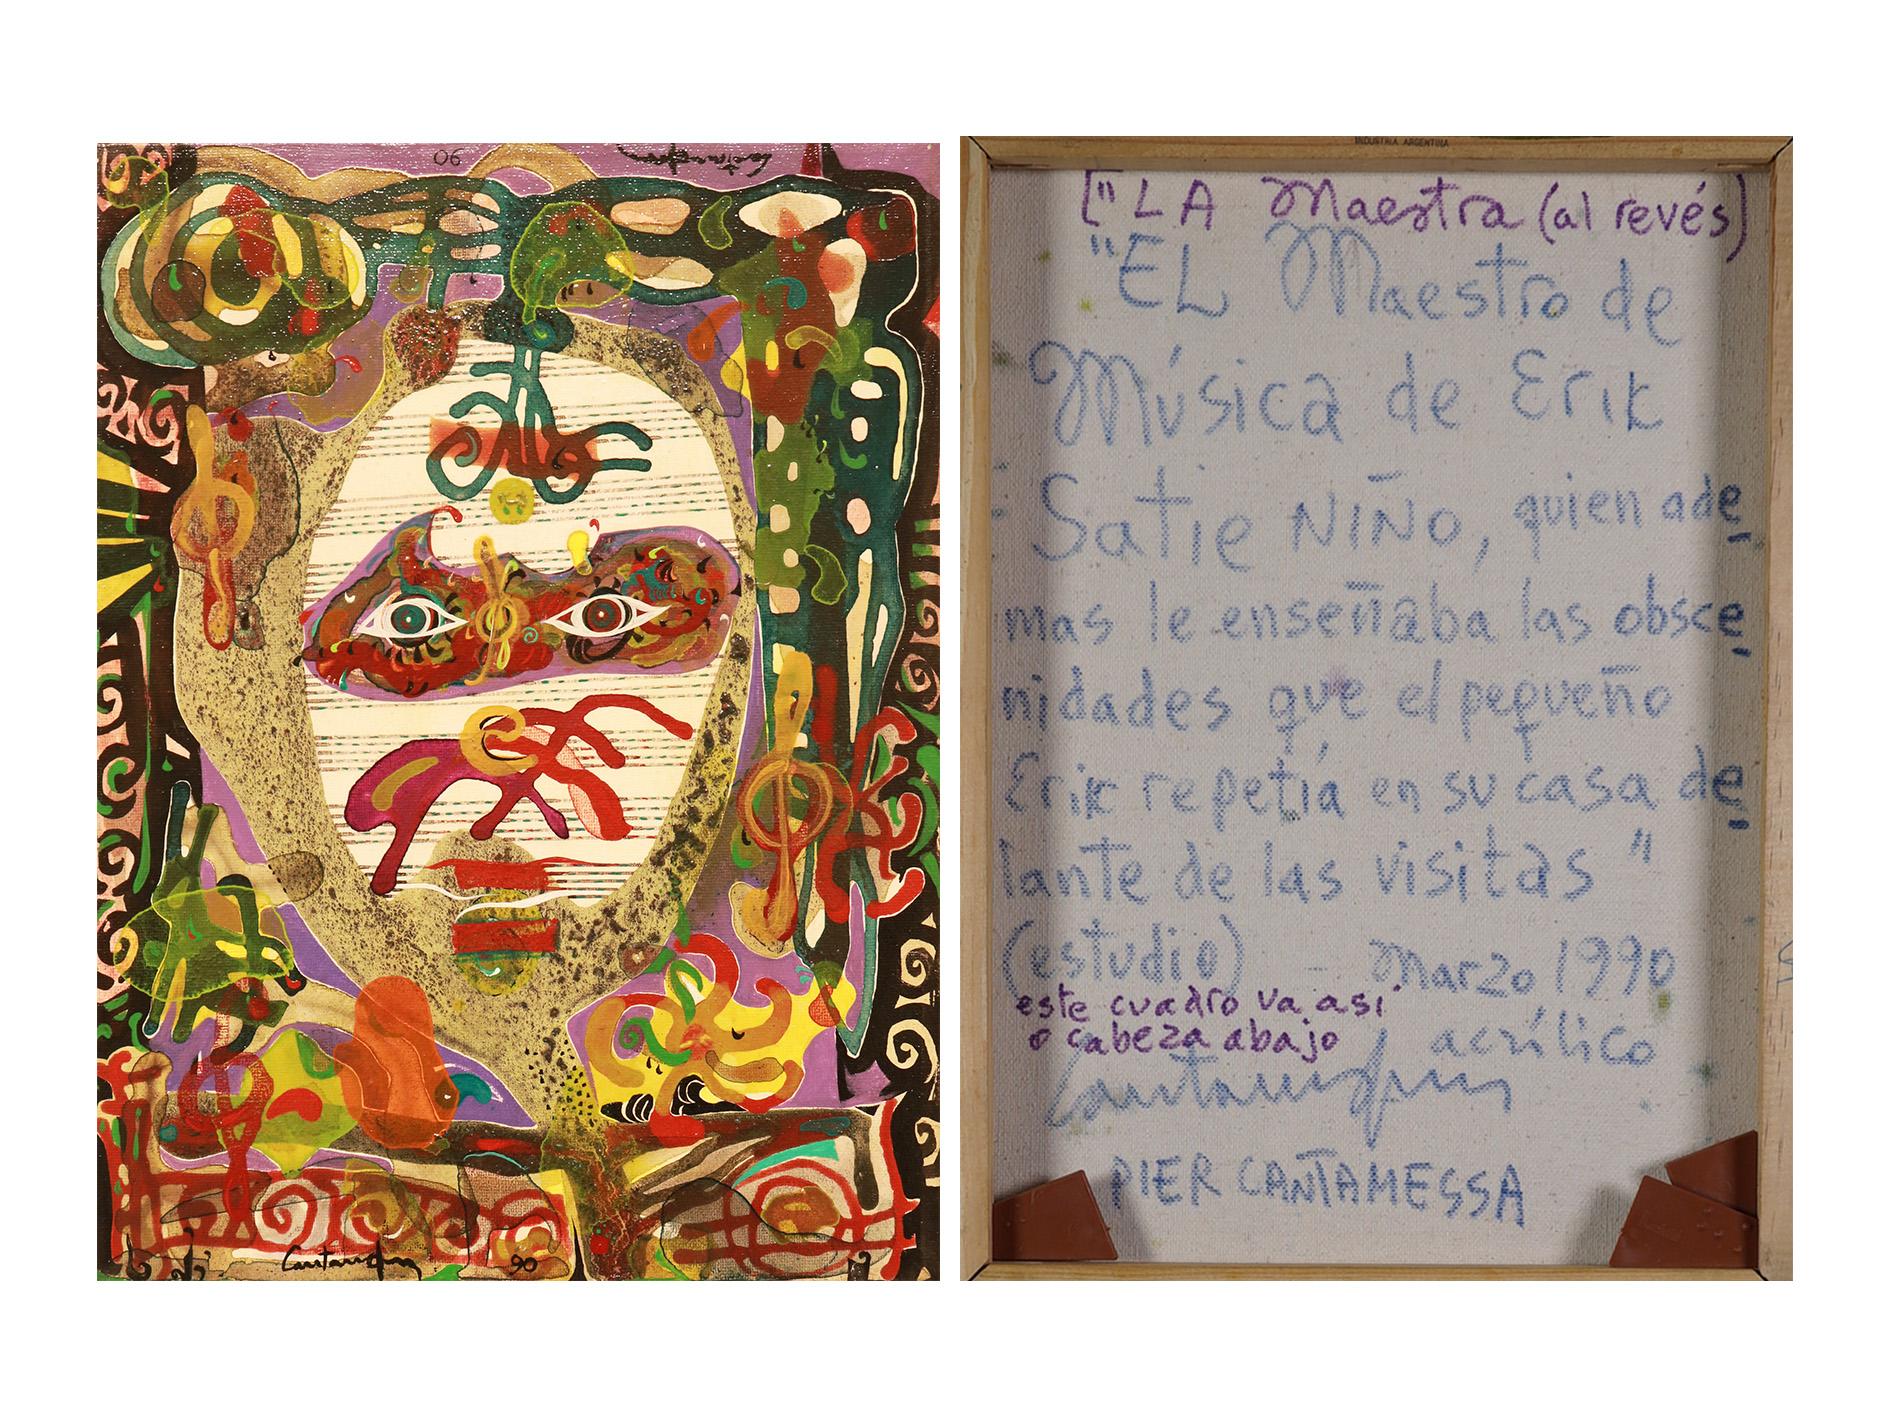 06
Cantamessa
Cantamessa 90
INDUSTRIA ARGENTINA
["LA Maestra (al revés)
"EL Maestro de
Música de Erik
Satie NIÑO, quien ade
mas le enseñaba las obsce
nidades que el pequeño
Erik repetía en su casa de
lante de las visitas"
(estudio) Marzo 1990
este cuadro va así
o cabeza abajo
acrílico
Cantamessa
PIER CANTAMESSA